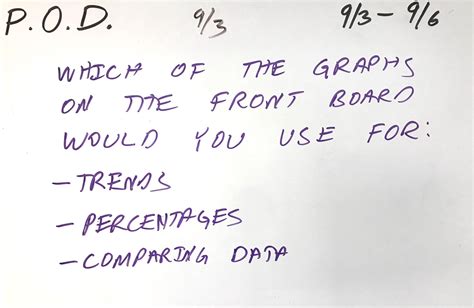 P.O.D. 9/3 9/3-9/6
WHICH OF THE GRAPHS
ON THE FRONT BOARD
WOULD YOU USE FOR:
- TRENDS
- PERCENTAGES
- COMPARING DATA